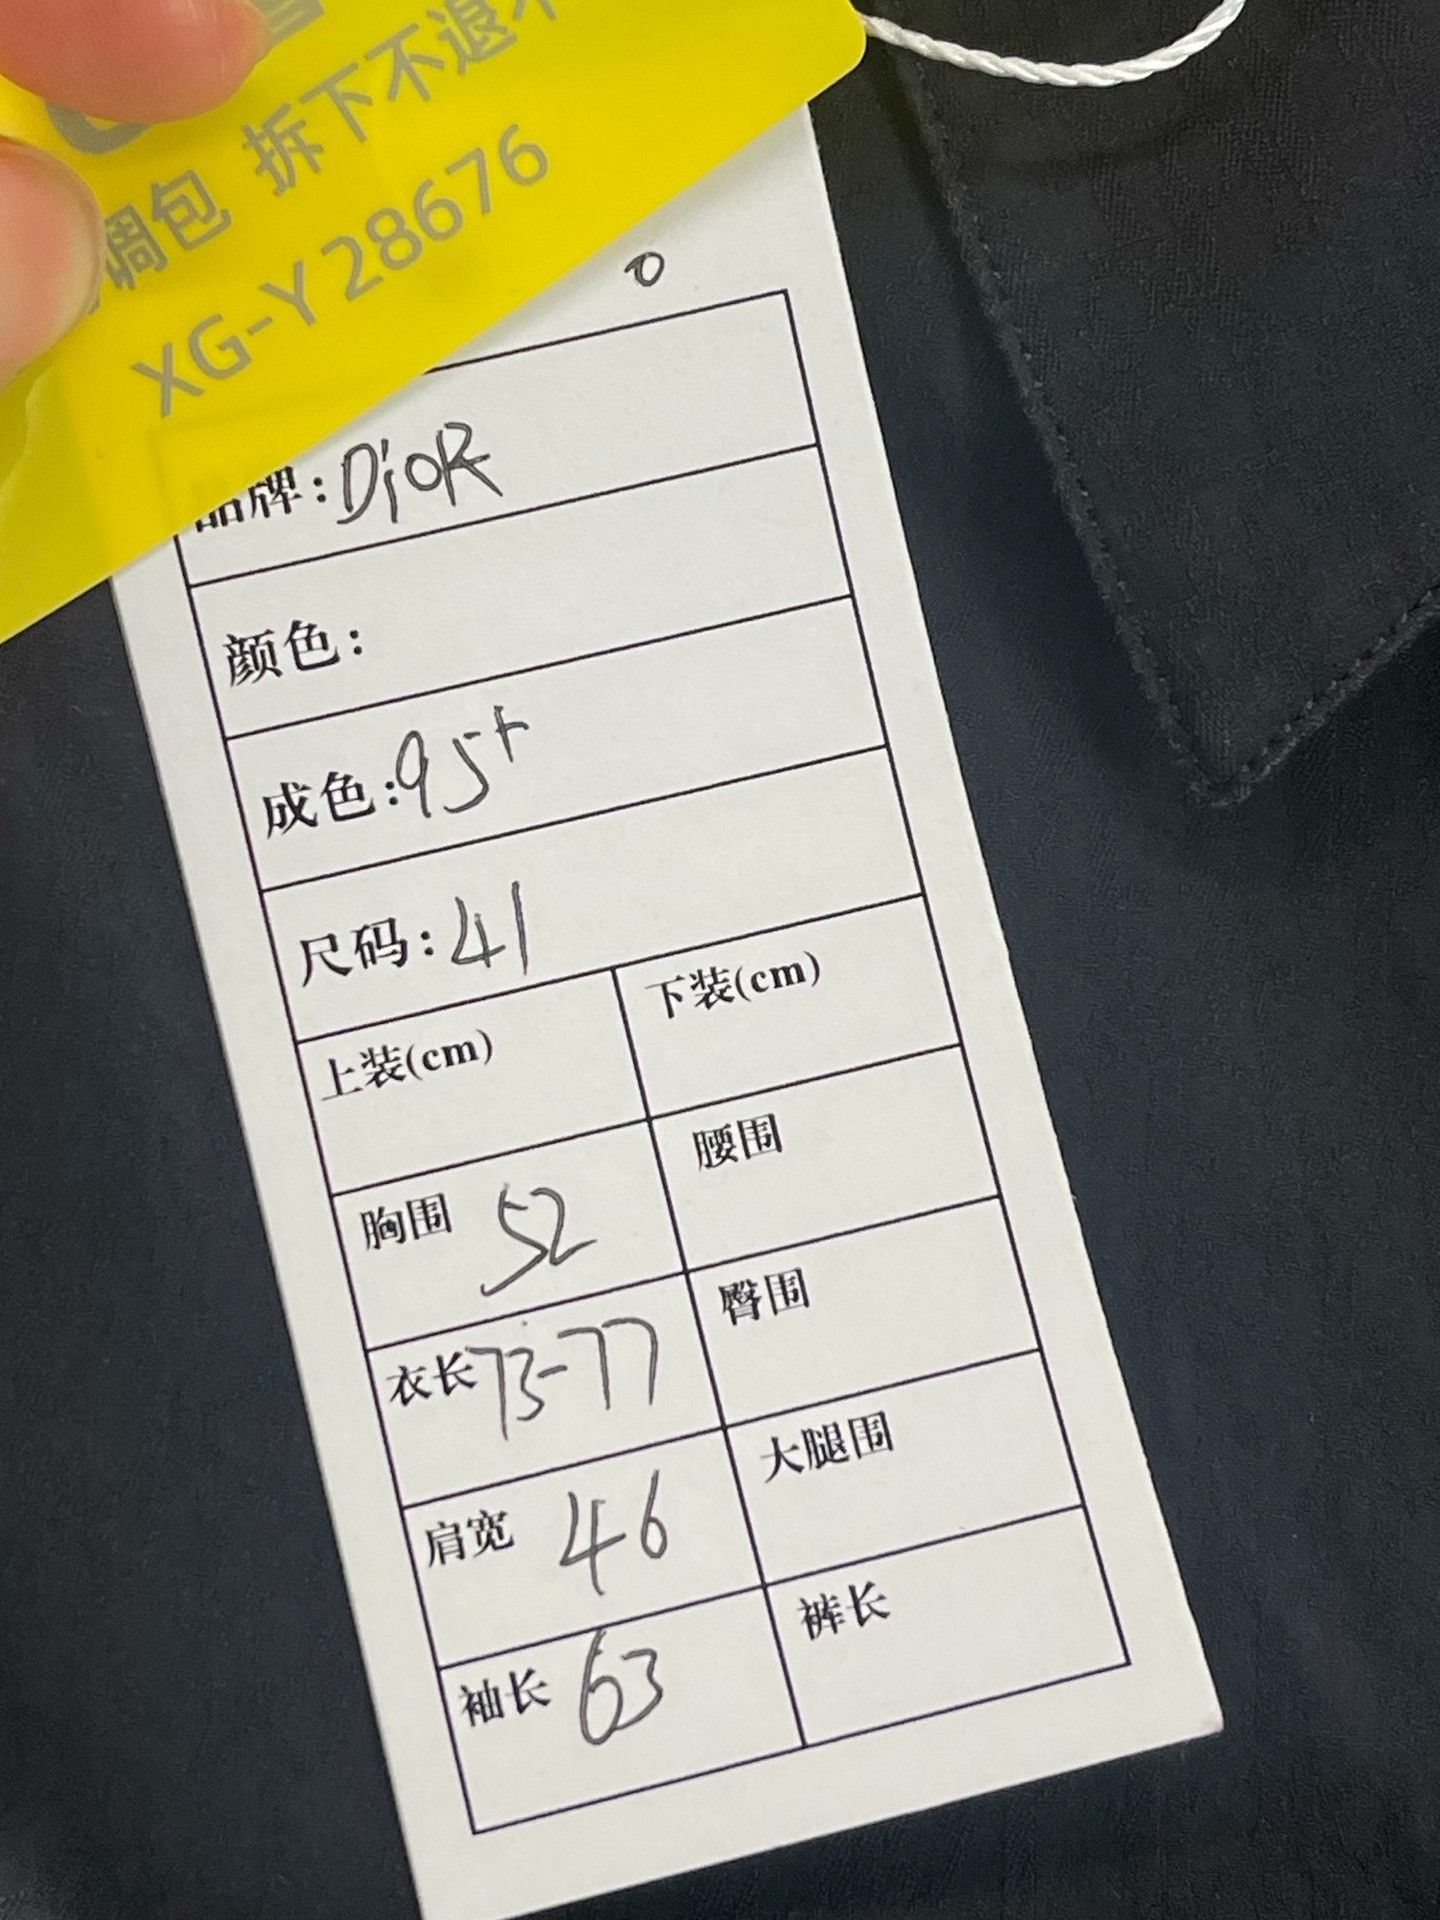 拆下不退不
调包
XG-Y28676
品牌:DiOR
颜色:
成色:95+
尺码:41
上装(cm) 下装(cm)
胸围 52 腰围
衣长 73-77 臀围
肩宽 46 大腿围
袖长 63 裤长